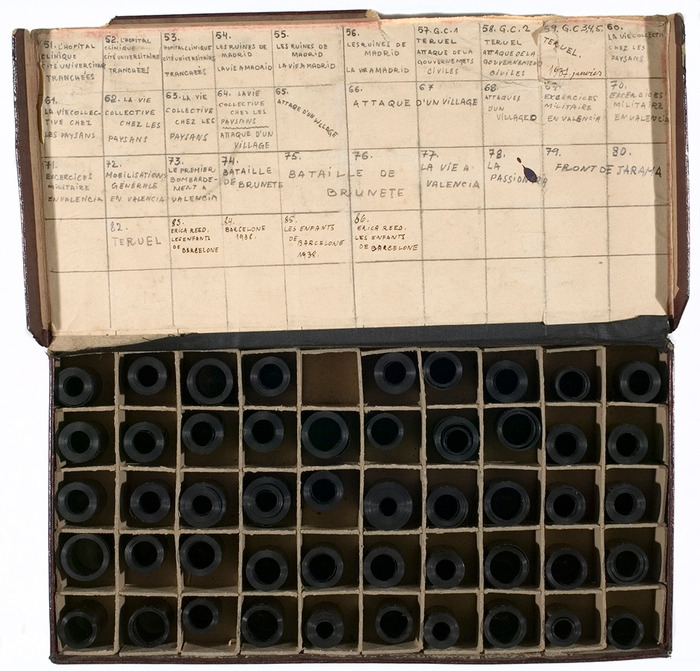 51. L'HOPITAL
CLINIQUE
CITÉ UNIVERSITAIRE
TRANCHÉES
52. L'HOPITAL
CLINIQUE
CITÉ UNIVERSITAIRE
TRANCHÉES
53.
HOPITAL CLINIQUE
CITÉ UNIVERSITAIRE
TRANCHÉES
54.
LES RUINES DE
MADRID
LA VIE A MADRID
55.
LES RUINES DE
MADRID
LA VIE A MADRID
56.
LES RUINES DE
MADRID
LA VIE A MADRID
57. G.C. 1
TERUEL
ATTAQUE DE LA
GOUVERNEMETS
CIVILES
58. G.C. 2
TERUEL
ATTAQUE DE LA
GOUVERNEMENTS
CIVILES
59. G.C. 3,4,5.
TERUEL.
janvier
60.
LA VIE COLLECTIV
CHEZ LES
PAYSANS
61.
LA VIE COLLEC-
TIVE CHEZ
LES PAYSANS
62. LA VIE
COLLECTIVE
CHEZ LES
PAYSANS
63. LA VIE
COLLECTIVE
CHEZ LES
PAYSANS
64. LA VIE
COLLECTIVE
CHEZ LES
PAYSANS
ATTAQUE D'UN
VILLAGE
65.
ATTAQE D'UN VILLAGE
66. 67
ATTAQUE D'UN VILLAGE
68.
ATTAQUES
D'UN
VILLAGE
69.
EXERCICES
MILITAIRE
EN VALENCIA
70.
EXERCICES
MILITAIRE
EN VALENCIA
71.
EXCERCICES
MILITAIRE
EN VALENCIA
72.
MOBILISATIONS
GÉNÉRALE
EN VALENCIA
73.
LE PREMIER
BOMBARDE-
MENT A
VALENCIA
74.
BATAILLE
DE BRUNETE
75. 76.
BATAILLE DE
BRUNETE
77.
LA VIE A
VALENCIA
78.
LA
PASSIONARIA
79. 80.
FRONT DE JARAMA
82.
TERUEL
83.
ERICA REED.
LES ENFANTS
DE BARCELONE
84.
BARCELONE
1938.
85.
LES ENFANTS
DE BARCELONE
1938.
86.
ERICA REED.
LES ENFANTS
DE BARCELONE